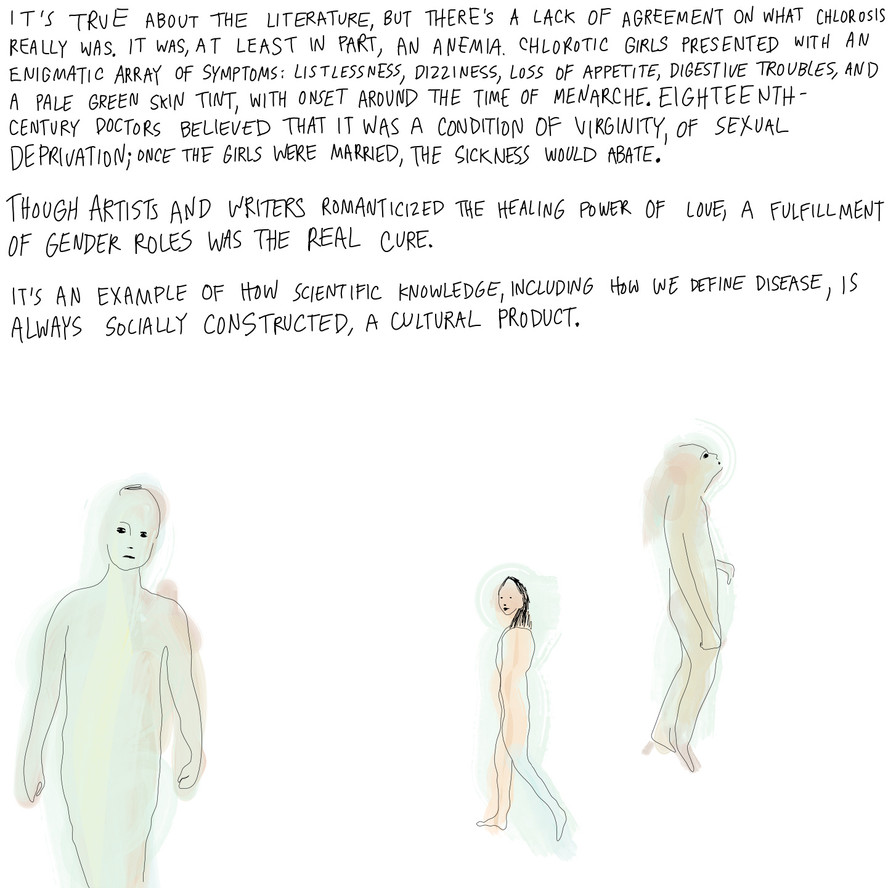 IT'S TRUE ABOUT THE LITERATURE, BUT THERE'S A LACK OF AGREEMENT ON WHAT CHLOROSIS
REALLY WAS. IT WAS, AT LEAST IN PART, AN ANEMIA. CHLOROTIC GIRLS PRESENTED WITH AN
ENIGMATIC ARRAY OF SYMPTOMS: LISTLESSNESS, DIZZINESS, LOSS OF APPETITE, DIGESTIVE TROUBLES, AND
A PALE GREEN SKIN TINT, WITH ONSET AROUND THE TIME OF MENARCHE. EIGHTEENTH-
CENTURY DOCTORS BELIEVED THAT IT WAS A CONDITION OF VIRGINITY, OF SEXUAL
DEPRIVATION; ONCE THE GIRLS WERE MARRIED, THE SICKNESS WOULD ABATE.
THOUGH ARTISTS AND WRITERS ROMANTICIZED THE HEALING POWER OF LOVE, A FULFILLMENT
OF GENDER ROLES WAS THE REAL CURE.
IT'S AN EXAMPLE OF HOW SCIENTIFIC KNOWLEDGE, INCLUDING HOW WE DEFINE DISEASE, IS
ALWAYS SOCIALLY CONSTRUCTED, A CULTURAL PRODUCT.